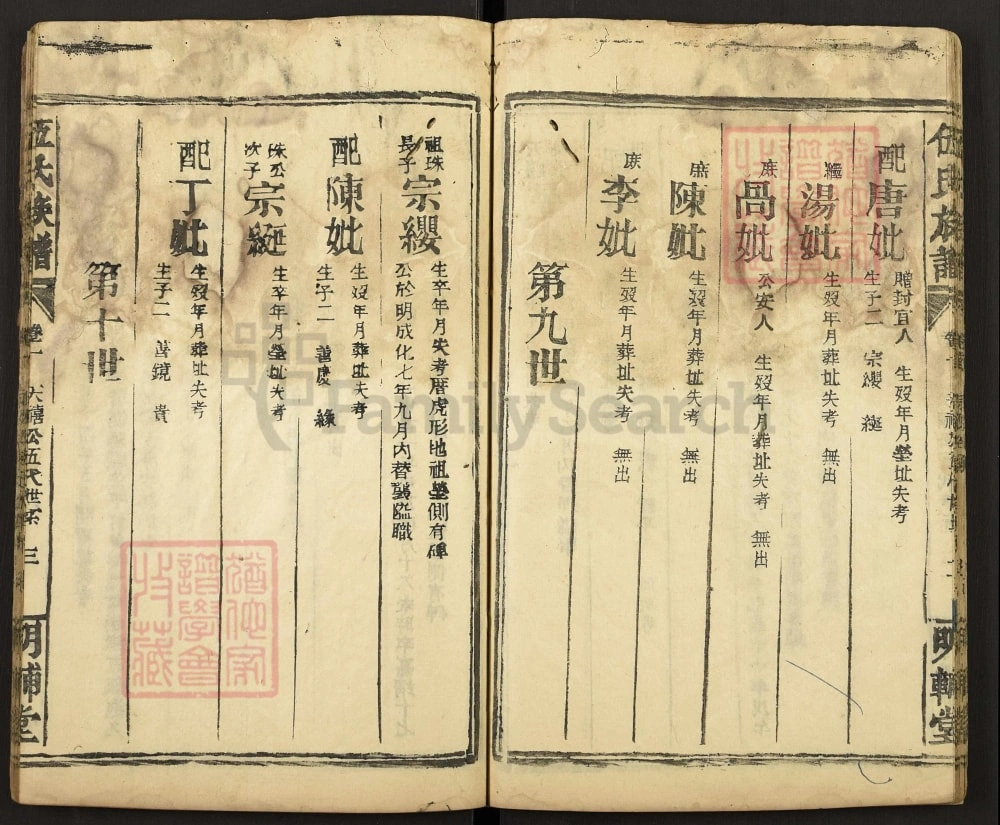 伍氏族譜
明輔堂
配唐妣 贈封宜人 生歿年月塋址失考
生子二 宗纓 綎
繼湯妣 生歿年月葬址失考 無出
庶咼妣 公安人 生歿年月葬址失考 無出
庶陳妣 生歿年月葬址失考 無出
庶李妣 生歿年月葬址失考 無出
第九世
祖珠長子宗纓 生卒年月失考厝虎形地祖塋側有碑
公於明成化七年九月內替襲隘職
配陳妣 生歿年月葬址失考
生子二 善慶 緣
珠公次子宗綎 生卒年月塋址失考
配丁妣 生歿年月葬址失考
生子二 善鏡 貴
第十世
伍氏族譜
卷一
公五代世系
三
明輔堂
FamilySearch